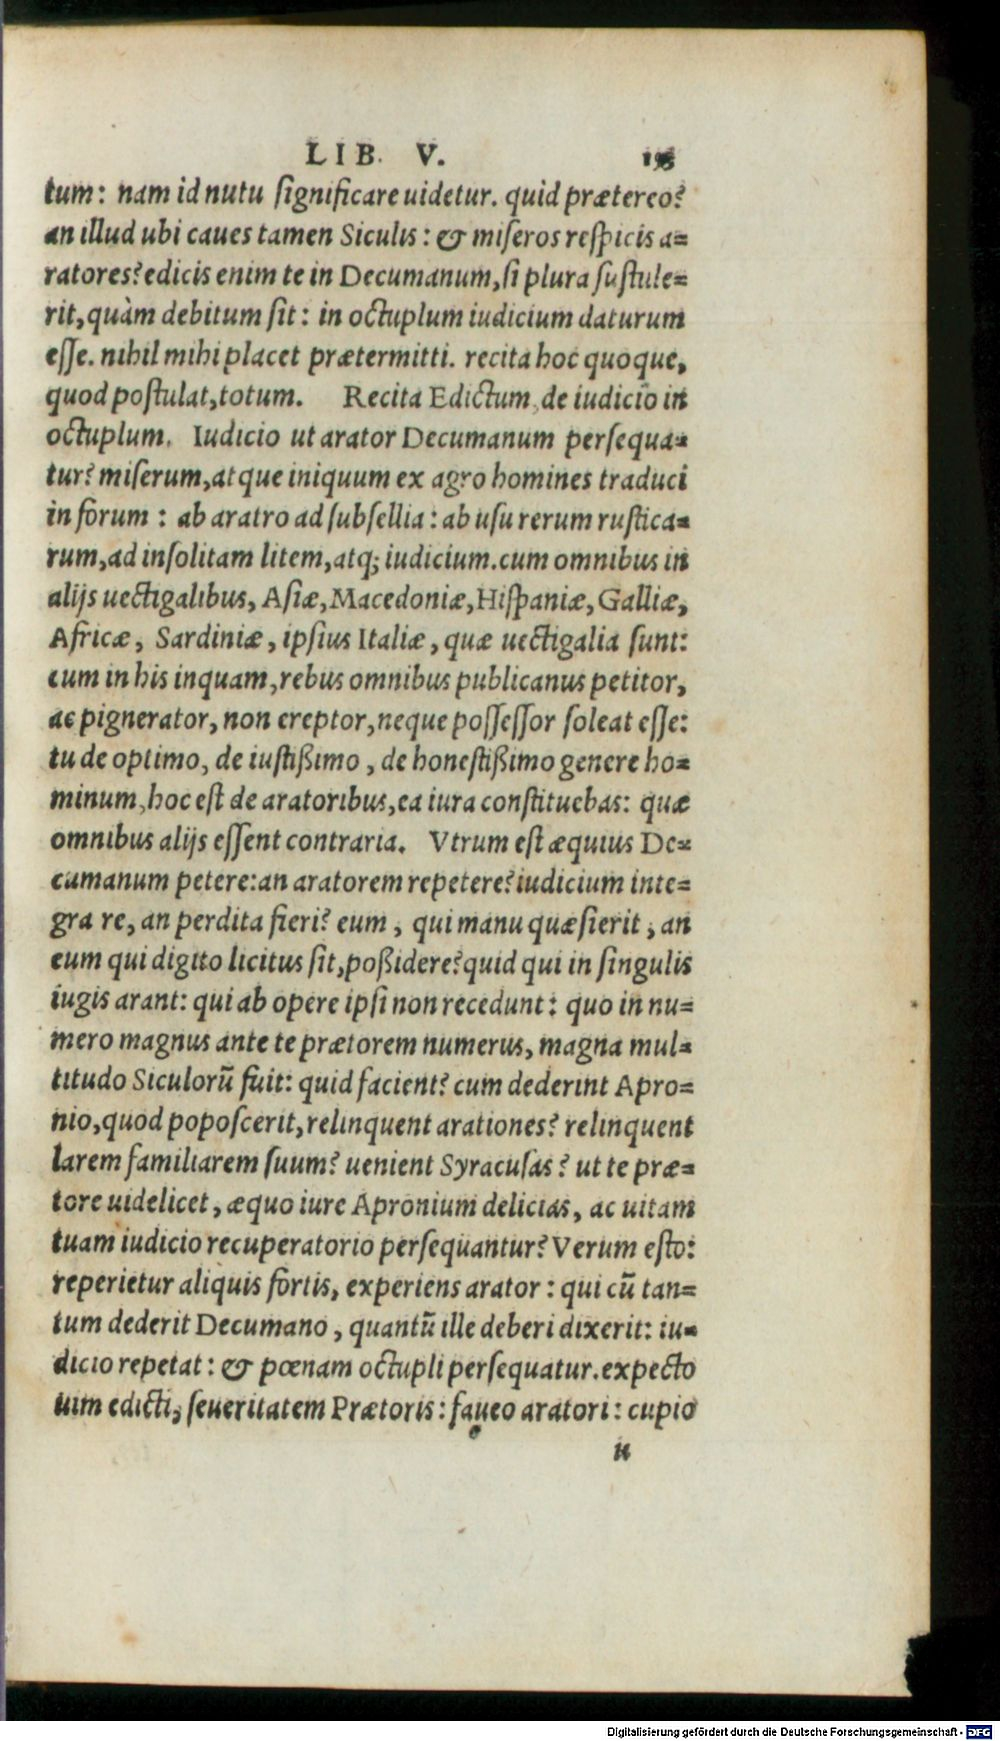 LIB. V.
tum: nam id nutu significare uidetur. quid prætereo?
an illud ubi caues tamen Siculis: & miseros respicis a=
ratores? edicis enim te in Decumanum, si plura sustule=
rit, quàm debitum sit: in octuplum iudicium daturum
esse. nihil mihi placet prætermitti. recita hoc quoque,
quod postulat, totum. Recita Edictum, de iudicio in
octuplum. Iudicio ut arator Decumanum persequa=
tur? miserum, atque iniquum ex agro homines traduci
in forum: ab aratro ad subsellia: ab usu rerum rustica=
rum, ad insolitam litem, atq; iudicium. cum omnibus in
alijs uectigalibus, Asiæ, Macedoniæ, Hispaniæ, Galliæ,
Africæ, Sardiniæ, ipsius Italiæ, quæ uectigalia sunt:
cum in his inquam, rebus omnibus publicanus petitor,
ac pignerator, non ereptor, neque possessor soleat esse:
tu de optimo, de iustißimo, de honestißimo genere ho=
minum, hoc est de aratoribus, ea iura constituebas: quæ
omnibus alijs essent contraria. Vtrum est æquius De=
cumanum petere: an aratorem repetere? iudicium inte=
gra re, an perdita fieri? eum, qui manu quæsierit, an
eum qui digito licitus sit, poßidere? quid qui in singulis
iugis arant: qui ab opere ipsi non recedunt: quo in nu=
mero magnus ante te prætorem numerus, magna mul=
titudo Siculorũ fuit: quid facient? cum dederint Apro=
nio, quod poposcerit, relinquent arationes? relinquent
larem familiarem suum? uenient Syracusas? ut te præ=
tore uidelicet, æquo iure Apronium delicias, ac uitam
tuam iudicio recuperatorio persequantur? Verum esto:
reperietur aliquis fortis, experiens arator: qui cũ tan=
tum dederit Decumano, quantũ ille deberi dixerit: iu=
dicio repetat: & pœnam octupli persequatur. expecto
uim edicti, seueritatem Prætoris: faueo aratori: cupio
u
Digitalisierung gefördert durch die Deutsche Forschungsgemeinschaft - DFG